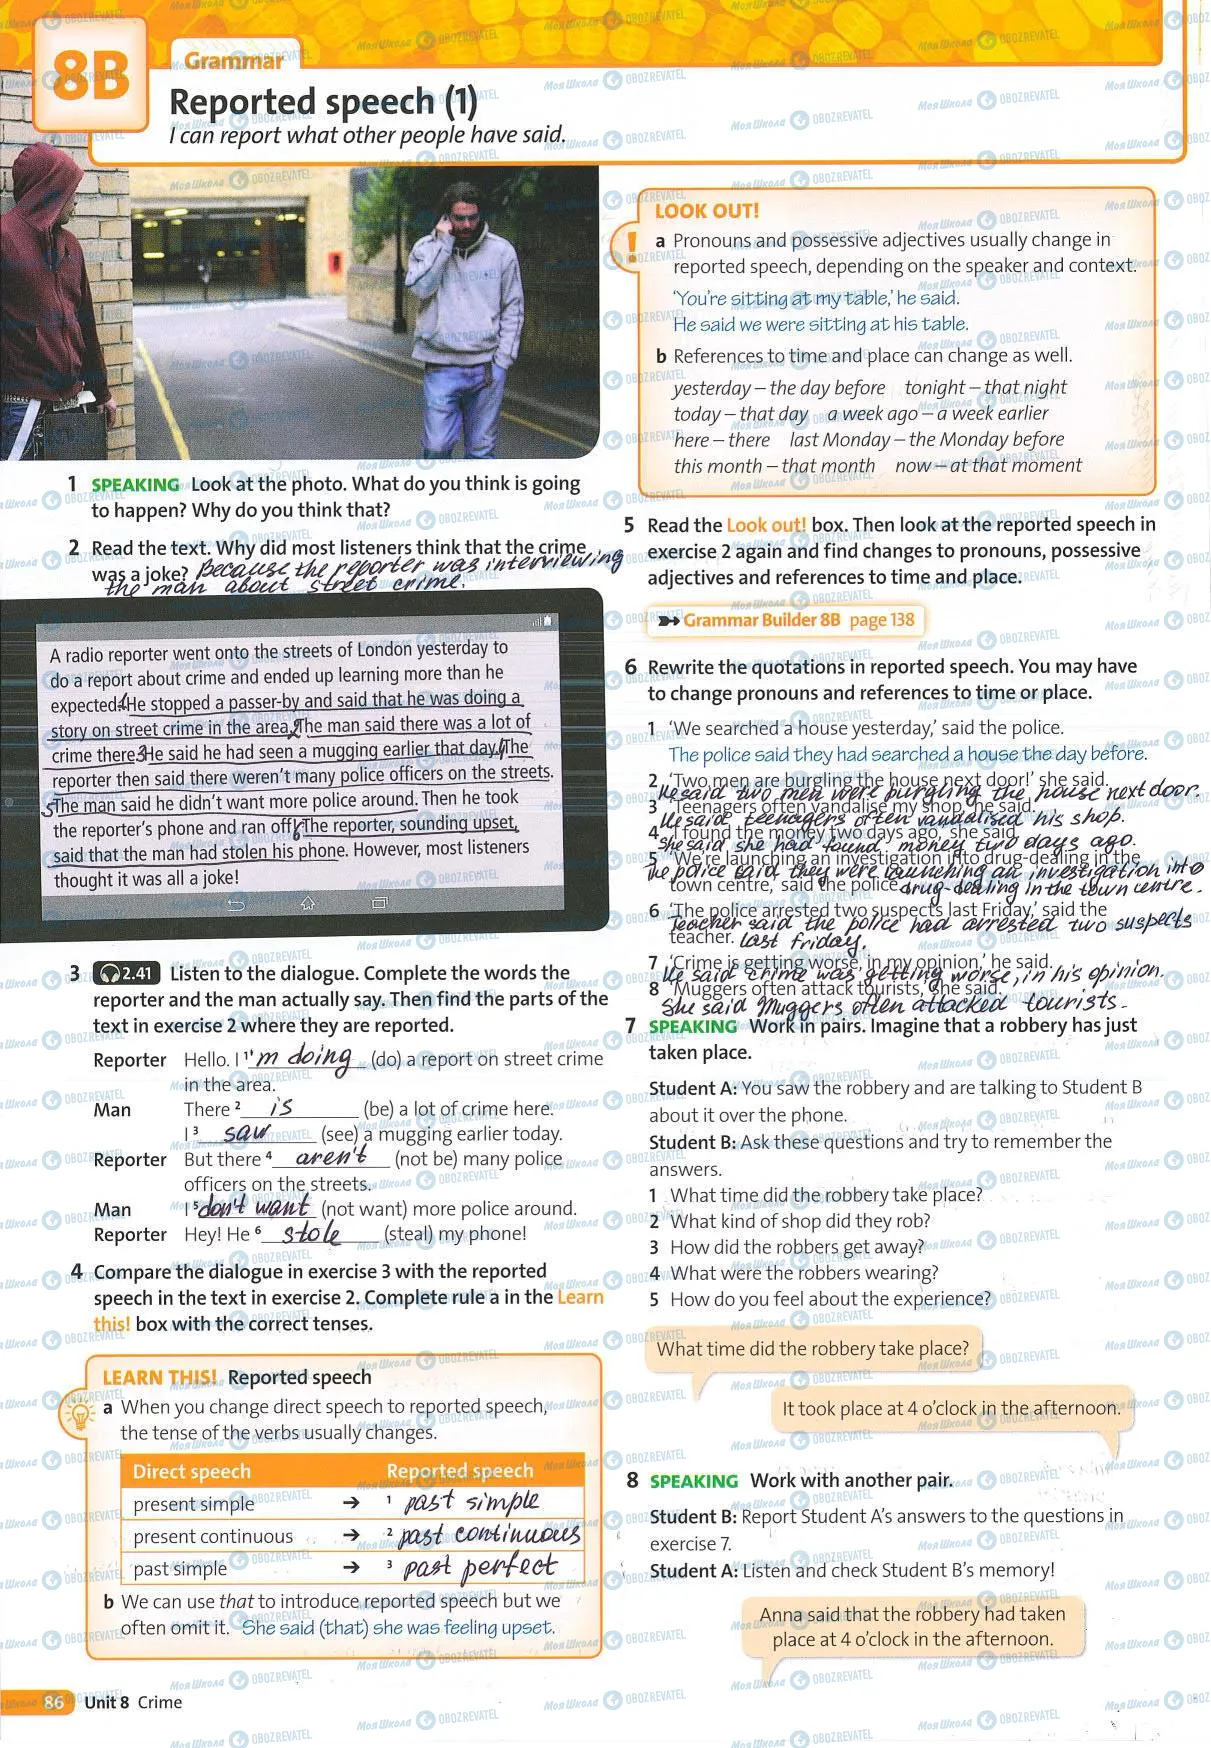 8B
Grammar
Reported speech (1)
I can report what other people have said.
1 SPEAKING Look at the photo. What do you think is going
to happen? Why do you think that?
2 Read the text. Why did most listeners think that the crime
was a joke? Because the reporter was interviewing
the man about street crime.
A radio reporter went onto the streets of London yesterday to
do a report about crime and ended up learning more than he
expected. 1 He stopped a passer-by and said that he was doing a
story on street crime in the area. 2 The man said there was a lot of
crime there. 3 He said he had seen a mugging earlier that day. 4 The
reporter then said there weren't many police officers on the streets.
5 The man said he didn't want more police around. Then he took
the reporter's phone and ran off! 6 The reporter, sounding upset,
said that the man had stolen his phone. However, most listeners
thought it was all a joke!
3 2.41 Listen to the dialogue. Complete the words the
reporter and the man actually say. Then find the parts of the
text in exercise 2 where they are reported.
Reporter Hello. I 1 'm doing (do) a report on street crime
in the area.
Man There 2 is (be) a lot of crime here.
I 3 saw (see) a mugging earlier today.
Reporter But there 4 aren't (not be) many police
officers on the streets.
Man I 5 don't want (not want) more police around.
Reporter Hey! He 6 stole (steal) my phone!
4 Compare the dialogue in exercise 3 with the reported
speech in the text in exercise 2. Complete rule a in the Learn
this! box with the correct tenses.
LEARN THIS! Reported speech
a When you change direct speech to reported speech,
the tense of the verbs usually changes.
Direct speech Reported speech
present simple → 1 past simple
present continuous → 2 past continuous
past simple → 3 past perfect
b We can use that to introduce reported speech but we
often omit it. She said (that) she was feeling upset.
86 Unit 8 Crime
LOOK OUT!
! a Pronouns and possessive adjectives usually change in
reported speech, depending on the speaker and context.
'You're sitting at my table,' he said.
He said we were sitting at his table.
b References to time and place can change as well.
yesterday – the day before tonight – that night
today – that day a week ago – a week earlier
here – there last Monday – the Monday before
this month – that month now – at that moment
5 Read the Look out! box. Then look at the reported speech in
exercise 2 again and find changes to pronouns, possessive
adjectives and references to time and place.
Grammar Builder 8B page 138
6 Rewrite the quotations in reported speech. You may have
to change pronouns and references to time or place.
1 'We searched a house yesterday,' said the police.
The police said they had searched a house the day before.
2 'Two men are burgling the house next door!' she said.
He said two men were burgling the house next door.
3 'Teenagers often vandalise my shop,' he said.
He said teenagers often vandalised his shop.
4 'I found the money two days ago,' she said.
She said she had found money two days ago.
5 'We're launching an investigation into drug-dealing in the
The police said they were launching an investigation into
town centre,' said the police. drug-dealing in the town centre.
6 'The police arrested two suspects last Friday,' said the
Teacher said the police had arrested two suspects
teacher. last friday.
7 'Crime is getting worse, in my opinion,' he said.
He said crime was getting worse, in his opinion.
8 'Muggers often attack tourists,' she said.
She said Muggers often attacked tourists.
7 SPEAKING Work in pairs. Imagine that a robbery has just
taken place.
Student A: You saw the robbery and are talking to Student B
about it over the phone.
Student B: Ask these questions and try to remember the
answers.
1 What time did the robbery take place?
2 What kind of shop did they rob?
3 How did the robbers get away?
4 What were the robbers wearing?
5 How do you feel about the experience?
What time did the robbery take place?
It took place at 4 o'clock in the afternoon.
8 SPEAKING Work with another pair.
Student B: Report Student A's answers to the questions in
exercise 7.
Student A: Listen and check Student B's memory!
Anna said that the robbery had taken
place at 4 o'clock in the afternoon.
Моя Школа OBOZREVATEL